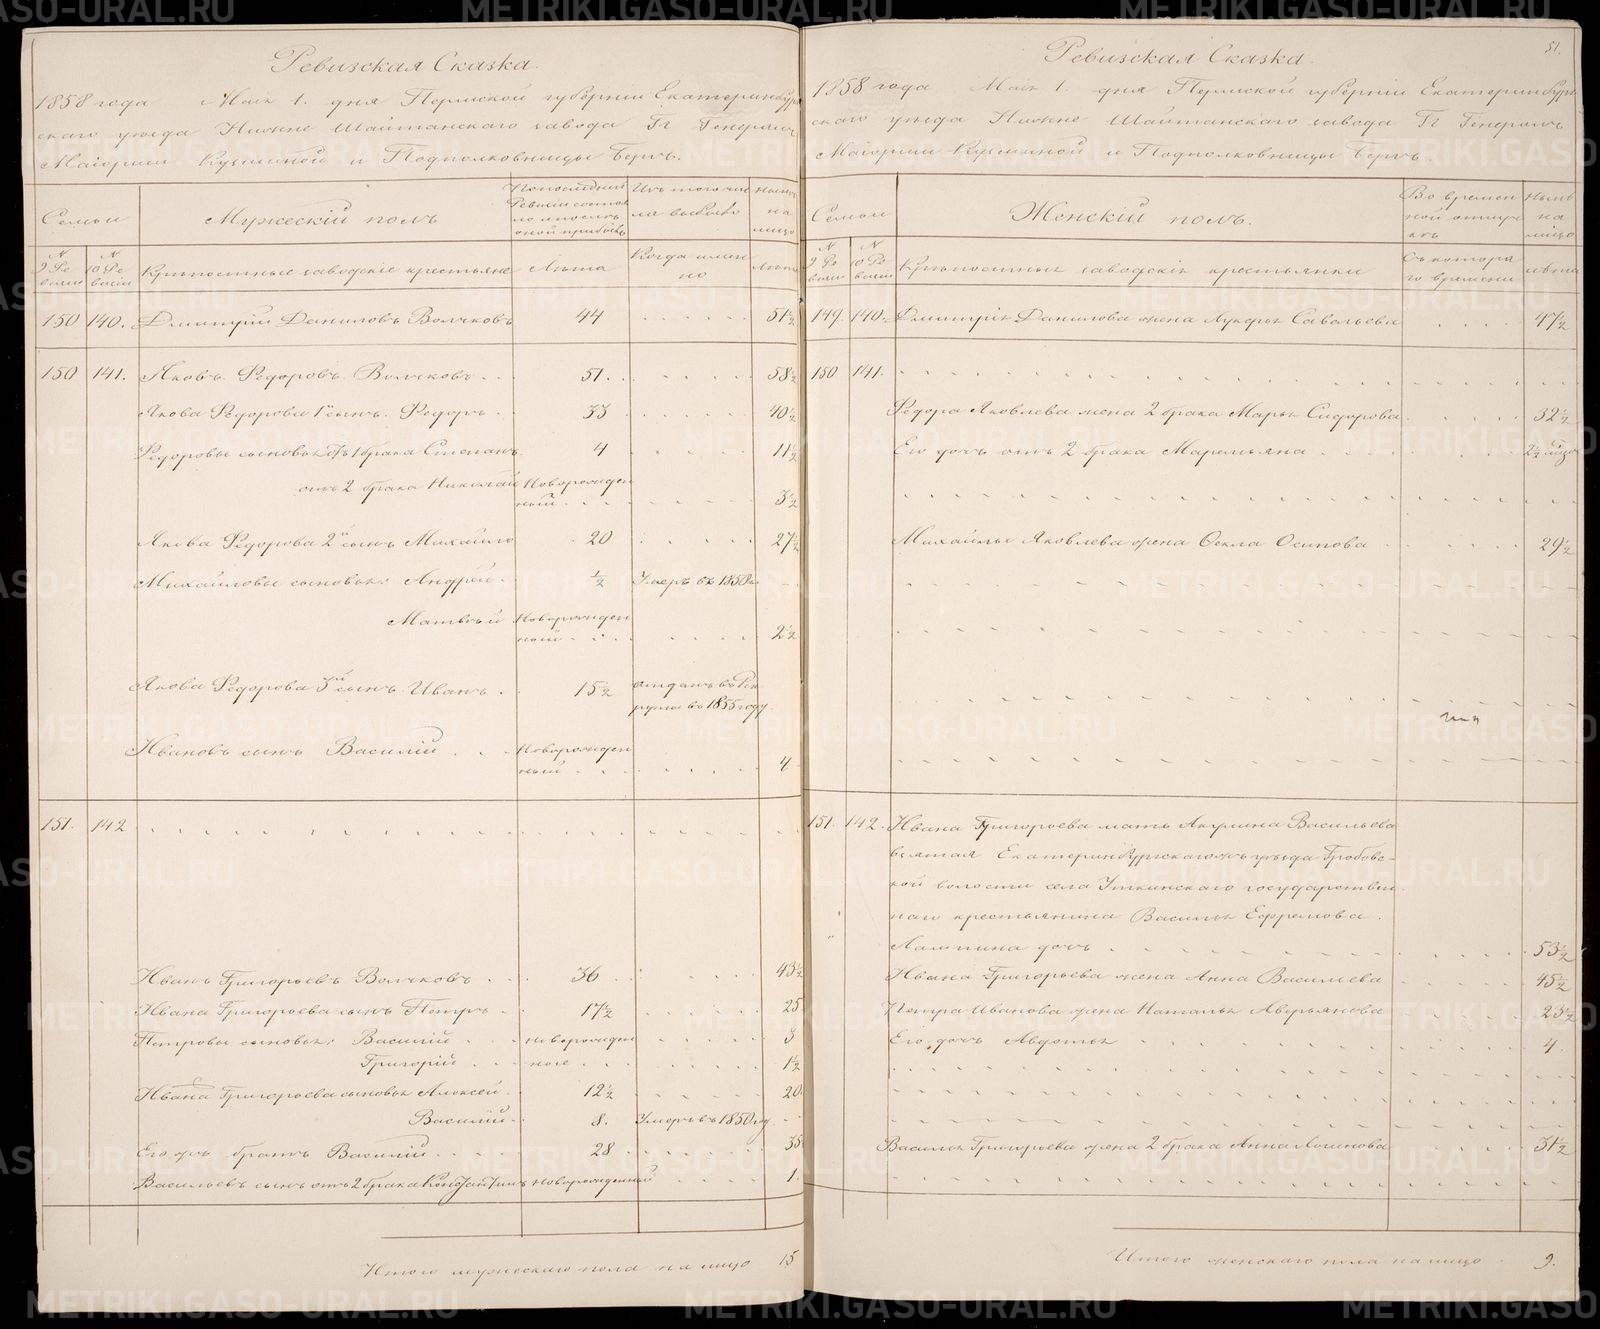 Ревизская Сказка.
1858 года Маiя 1. дня Пермской губернiи Екатеринбург
скаго уѣзда Нижне Шайтанскаго завода Гг Генералъ
Маiорши Кузьминой и Подполковницы Бергъ.
Семьи
Мужескiй полъ
По последней Ревизiи состояло и после оной прибыло
Изъ того числа выбыло
Ныне на лицо
N 9 Ревизiи
N 10 Ревизiи
Крѣпостные заводскiе крестьяне
Лѣта
Когда именно
Лѣта
150 140. Дмитрiй Даниловъ Волчковъ 44 51½
150 141. Яковъ Ѳедоровъ Волчковъ 51. 58½
Якова Ѳедорова 1й сынъ. Ѳедоръ 33 40½
Ѳедоровы сыновья отъ 1 брака Степанъ 4 11½
отъ 2 брака Николай Новорожден
ный 3½
Якова Ѳедорова 2й сынъ Михайло 20 27½
Михайловы сыновья: Андрей ½ Умеръ въ 1850 г.
Матвѣй Новорожден
ный 2½
Якова Ѳедорова 3й сынъ Иванъ 15½ отданъ въ Рек
руты въ 1855 году
Ивановъ сынъ Василiй Новорожден
ный 4
151. 142
Иванъ Григорьевъ Волчковъ 36 43½
Ивана Григорьева сынъ Петръ 17½ 25
Петровы сыновья: Василiй новорожден 3
Григорiй ные 1½
Ивана Григорьева сыновья Алексей 12½ 20
Василiй 8. Умеръ въ 1850 году
Его же братъ Василiй 28 35
Васильевъ сынъ отъ 2 брака Константинъ новорожденный 1.
Итого мужескаго пола на лицо 15
51.
Ревизская Сказка.
1858 года Маiя 1. дня Пермской губернiи Екатеринбург
скаго уѣзда Нижне Шайтанскаго завода Гг Генералъ
Маiорши Кузьминой и Подполковницы Бергъ.
Семьи
Женскiй полъ.
Во времен
ной отлуч
кѣ
Ныне на лицо
N 9 Ревизiи
N 10 Ревизiи
Крѣпостныя заводскiя крестьянки
Съ котора
го времени
лѣта
149. 140. Дмитрiя Данилова жена Лукерья Савельева 47½
150 141.
Ѳедора Яковлева жена 2 брака Марья Сидорова 32½
Его дочь отъ 2 брака Маремьяна 2½
Михайлы Яковлева жена Ѳекла Осипова 29½
151. 142. Ивана Григорьева мать Акулина Васильева
взятая Екатеринбургскаго уѣзда Гробовс-
кой волости села Уткинскаго государствен
наго крестьянина Василья Ефремова
Лаптина дочь 53½
Ивана Григорьева жена Анна Васильева 45½
Петра Иванова жена Наталья Аверьянова 23½
Его дочь Авдотья 4.
Василья Григорьева жена 2 брака Анна Логинова 31½
Итого женскаго пола на лицо 9.
METRIKI.GASO-URAL.RU